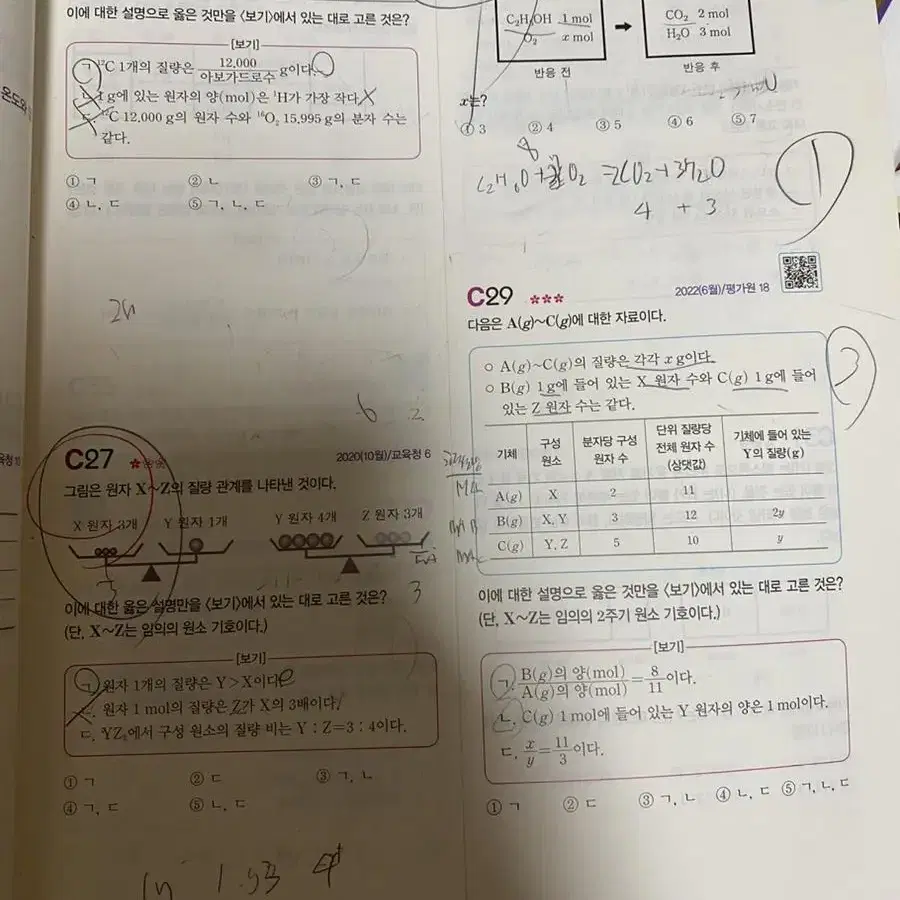 이에 대한 설명으로 옳은 것만을 <보기>에서 있는 대로 고른 것은?
[보기]
ㄱ. ¹²C 1개의 질량은 12,000/아보가드로수 g이다.
ㄴ. 1 g에 있는 원자의 양(mol)은 ¹H가 가장 작다.
ㄷ. ¹²C 12,000 g의 원자 수와 ¹⁶O₂ 15,995 g의 분자 수는
같다.
① ㄱ ② ㄴ ③ ㄱ, ㄷ
④ ㄴ, ㄷ ⑤ ㄱ, ㄴ, ㄷ
C27
2020(10월)/교육청 6
그림은 원자 X~Z의 질량 관계를 나타낸 것이다.
X 원자 3개 Y 원자 1개 Y 원자 4개 Z 원자 3개
3 3
이에 대한 옳은 설명만을 <보기>에서 있는 대로 고른 것은?
(단, X~Z는 임의의 원소 기호이다.)
[보기]
ㄱ. 원자 1개의 질량은 Y>X이다.
ㄴ. 원자 1 mol의 질량은 Z가 X의 3배이다.
ㄷ. YZ₂에서 구성 원소의 질량 비는 Y : Z=3 : 4이다.
① ㄱ ② ㄷ ③ ㄱ, ㄴ
④ ㄱ, ㄷ ⑤ ㄴ, ㄷ
C₂H₅OH 1 mol
O₂ x mol
CO₂ 2 mol
H₂O 3 mol
반응 전 반응 후
x는?
① 3 ② 4 ③ 5 ④ 6 ⑤ 7
8
=2CO₂+3H₂O
4 + 3
1
C29 ★★★
2022(6월)/평가원 18
다음은 A(g)~C(g)에 대한 자료이다.
3
○ A(g)~C(g)의 질량은 각각 x g이다.
○ B(g) 1 g에 들어 있는 X 원자 수와 C(g) 1 g에 들어
있는 Z 원자 수는 같다.
기체 구성 원소 분자당 구성 원자 수 단위 질량당 전체 원자 수 (상댓값) 기체에 들어 있는 Y의 질량(g)
A(g) X 2 11
B(g) X, Y 3 12 2y
C(g) Y, Z 5 10 y
이에 대한 설명으로 옳은 것만을 <보기>에서 있는 대로 고른 것은?
(단, X~Z는 임의의 2주기 원소 기호이다.)
[보기]
ㄱ. B(g)의 양(mol)/A(g)의 양(mol)=8/11이다.
ㄴ. C(g) 1 mol에 들어 있는 Y 원자의 양은 1 mol이다.
ㄷ. x/y=11/3이다.
① ㄱ ② ㄷ ③ ㄱ, ㄴ ④ ㄴ, ㄷ ⑤ ㄱ, ㄴ, ㄷ